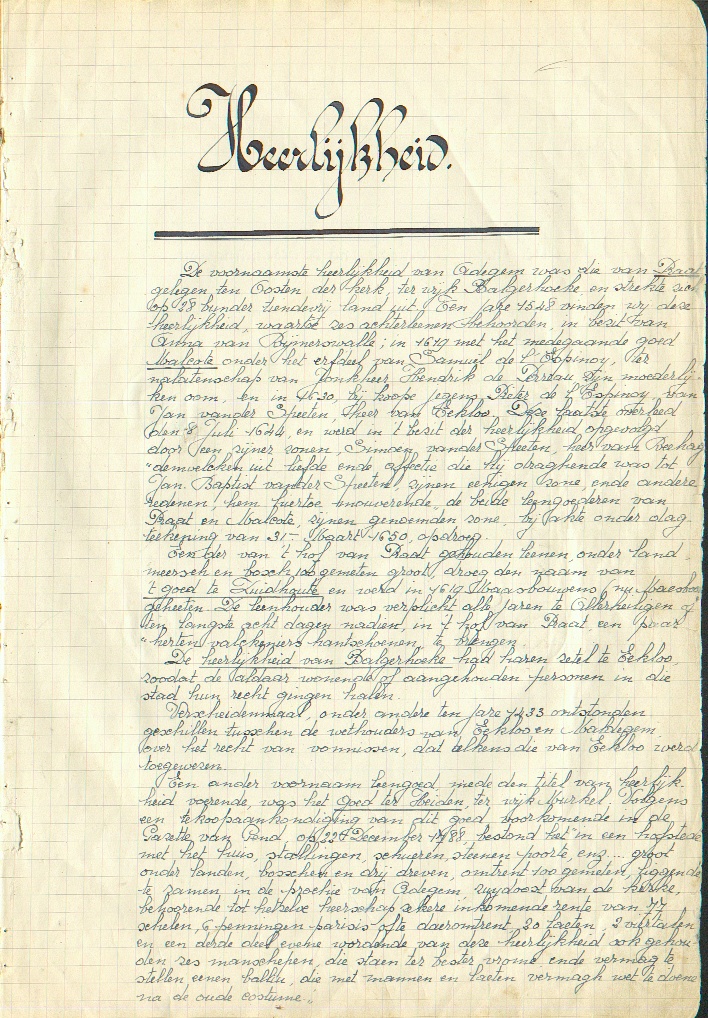 Heerlijkheid.
De voornaamste heerlijkheid van Adegem was die van Praat
gelegen ten Oosten der kerk, ter wijk Balgerhoeke en strekte zich
op 28 bunder tiendevrij land uit. Ten jare 1548 vinden wij deze
heerlijkheid, waartoe zes achterleenen behoorden, in bezit van
Anna van Rijmerswalle; in 1619 met het medegaande goed
Malcote onder het erfdeel van Samuël de l'Espinoy, ter
nalatenschap van Jonkheer Hendrik de zijn moederlij-
ken oom, en in 1630, bij koope jegens Pieter de l'Espinoy, van
Jan vander Speeten, Heer van Eekloo. Deze laatste overleed
den 8 Juli 1644, en werd in 't bezit der heerlijkheid opgevolgd
door een zijner zonen, Simoen vander Speeten, heer van
"demwelcken uit liefde ende affectie die hij draghende was tot
Jan Baptist vander Speeten, zijnen eenigen zone, ende andere
redenen, hem hiertoe mouverende, de beide leengoederen van
Praat en Malcote, zijnen genoemden zone, bij akte onder dag-
teekening van 31n Maart 1650, opdroeg.
Een der van 't hof van Praat gehouden leenen, onder land
meersch en bosch, 100 gemeten groot, droeg den naam van
't goed te Zuidhoute en werd in 1619 Maasbouwens (nu
geheeten. De leenhouder was verplicht alle jaren te Allerheiligen of
ten langste acht dagen nadien, in 't hof van Praat een paar
"herten valckeniers hantschoenen, te brengen.
De heerlijkheid van Balgerhoeke had haren zetel te Eekloo,
zoodat de aldaar wonende of aangehouden personen in die
stad hun recht gingen halen.
Verscheidenmaal, onder andere ten jare 1433 ontstonden
geschillen tusschen de wethouders van Eekloo en Maldegem
over het recht van vonnissen, dat telkens die van Eekloo werd
toegewezen.
Een ander voornaam leengoed, mede den titel van heerlijk-
heid voerende, was het Goed ter Heiden, ter wijk Murkel. Volgens
een tekoopaankondiging van dit goed voorkomende in de
Gazette van Gend, op 22n December 1788 bestond het "in een hofstede
met het huis, stallingen, schueren, steenen poorte, enz.... groot
onder landen, bosschen en drij dreven, omtrent 100 gemeten, liggende
te zamen, in de prochie van Adegem zuydoost van de kerke,
behoorende tot hetzelve heerschap zekere inkomende rente van 77
schelen, 6 penningen parisis ofte daeromtrent 20 laeten, 2 viertalen
en een derde deel evene wordende van deze heerlijkheid ook gehou-
den zes manschepen, die staen ter bester vrome ende vermag te
stellen eenen balliu, die met mannen en laeten vermagh wet te doene
na de oude costume."